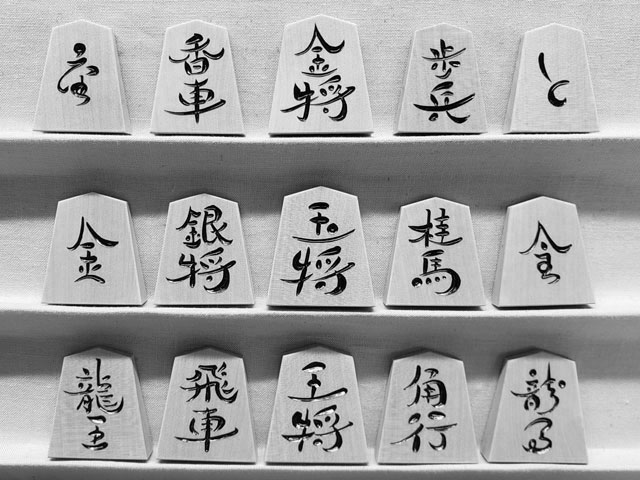 香車
金将
歩兵
と
金
銀将
玉将
桂馬
全
龍王
飛車
王将
角行
龍馬